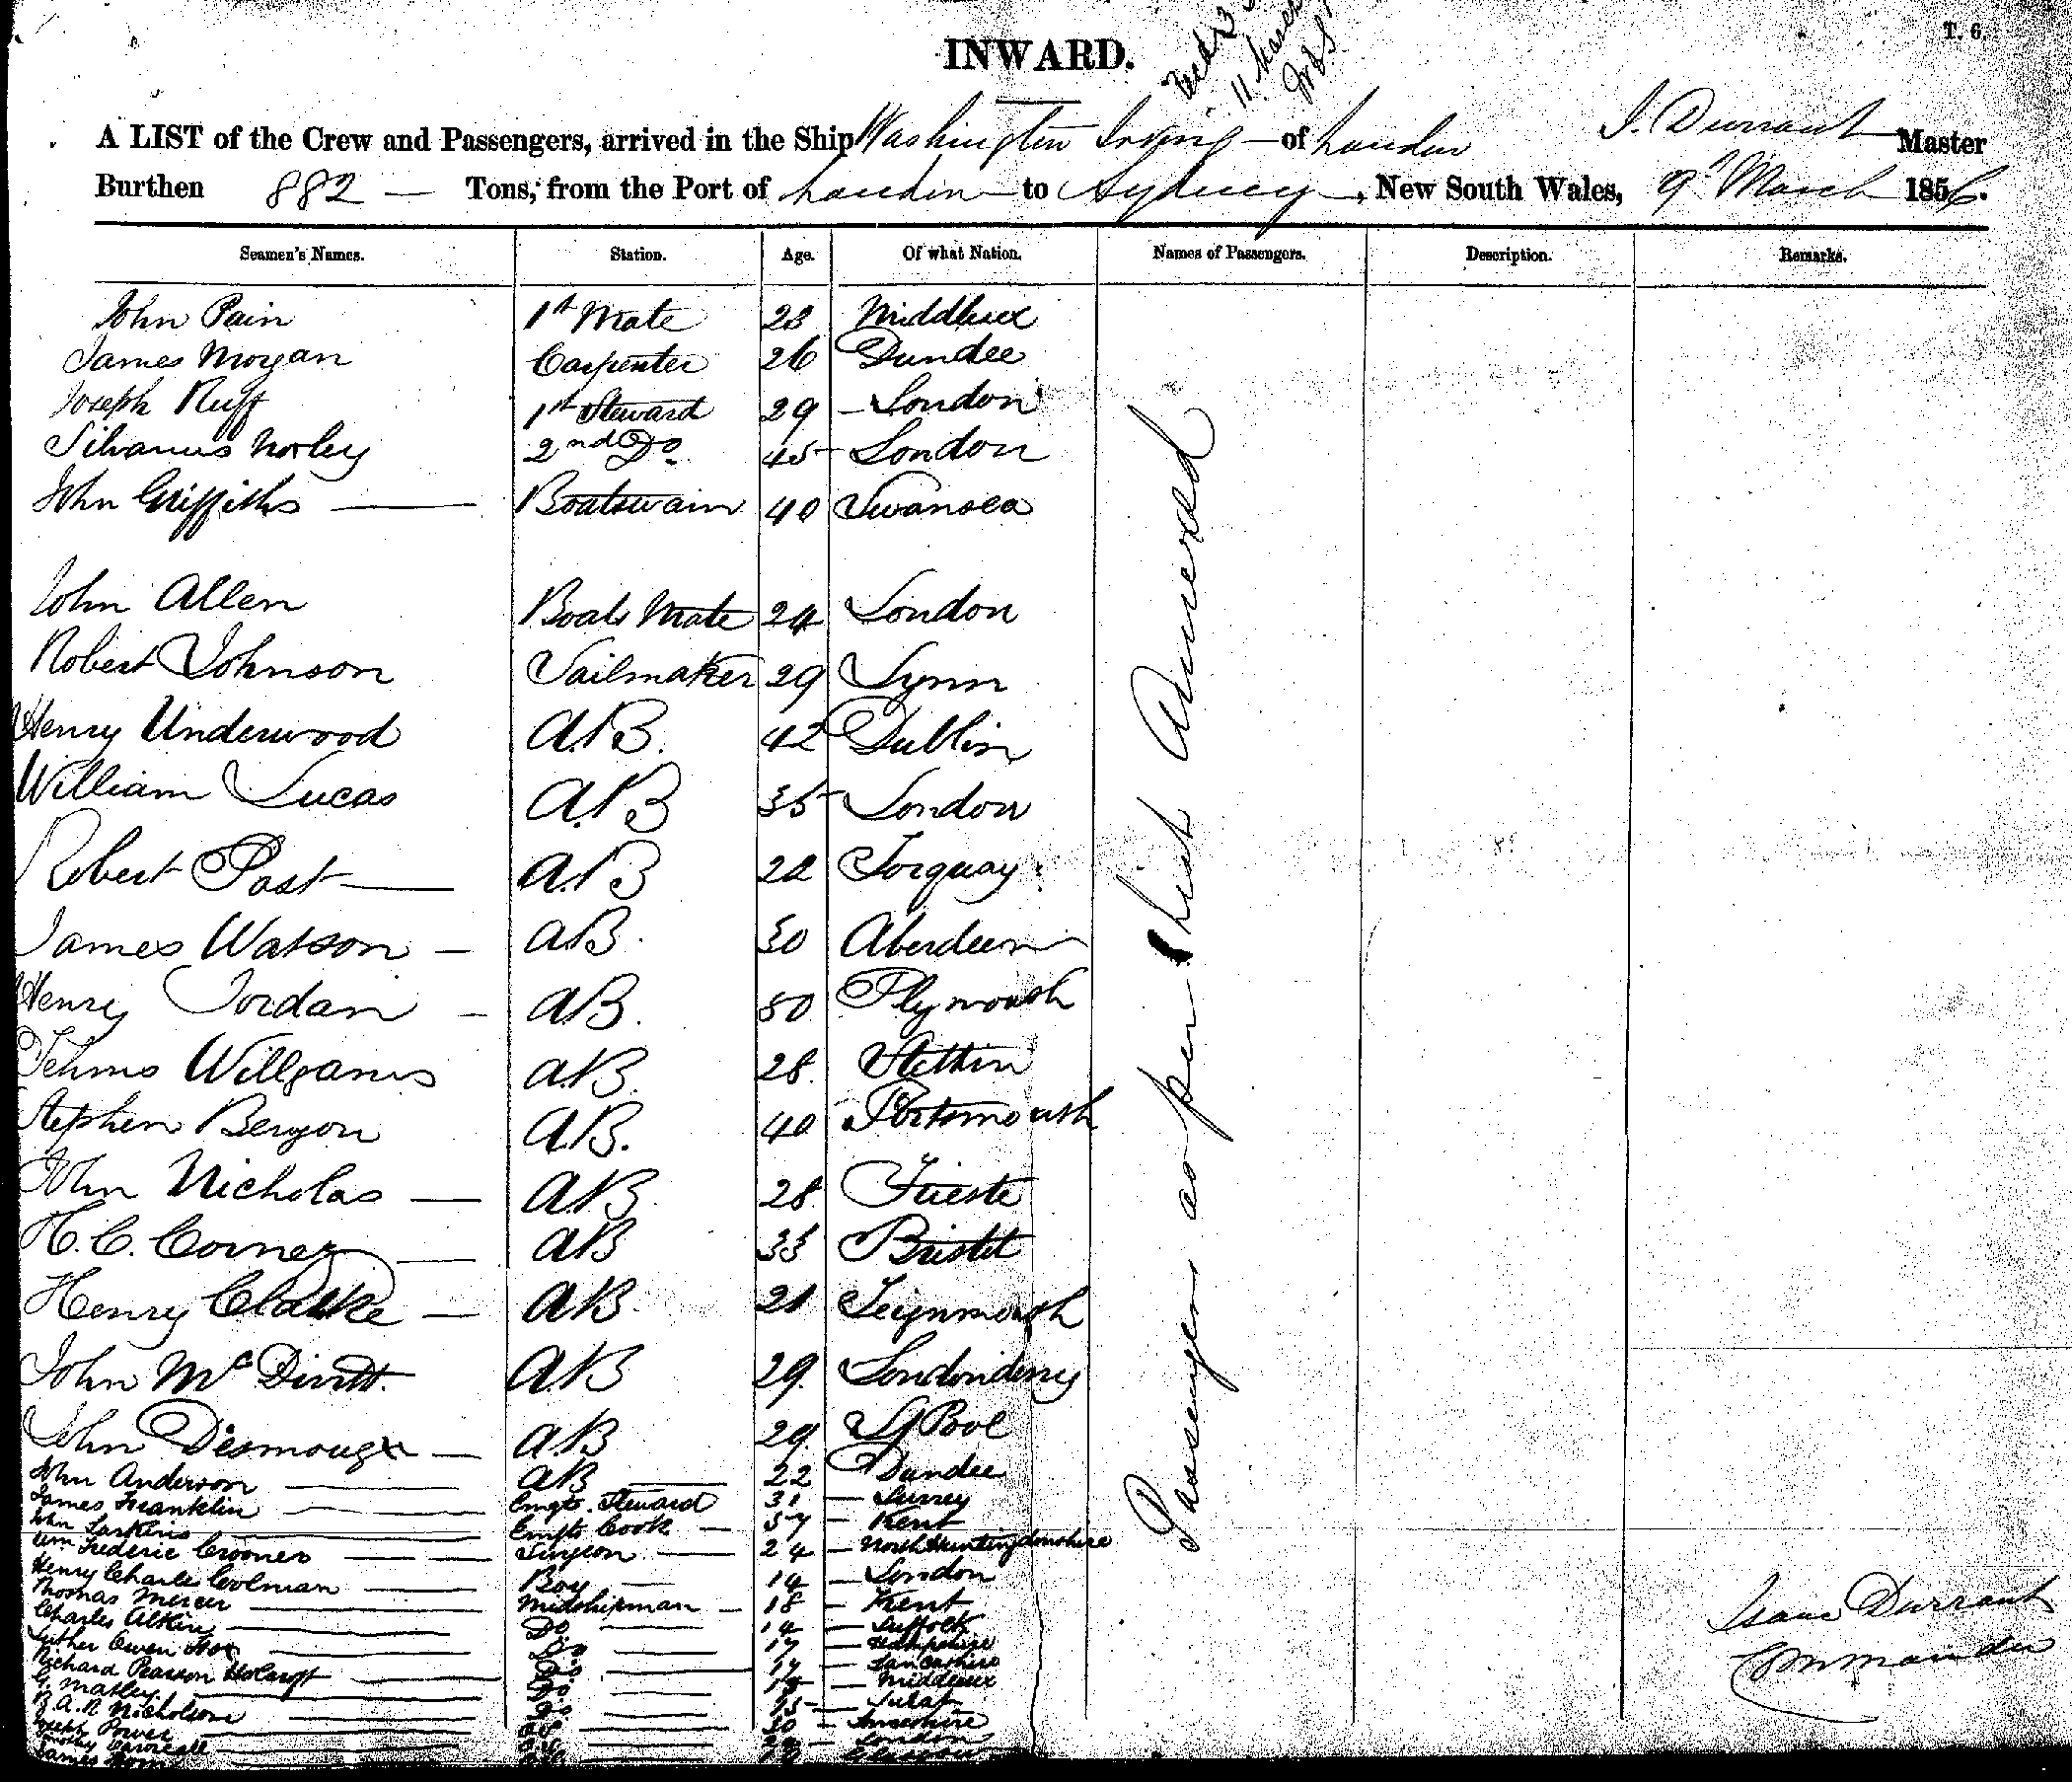 T. 6.
INWARD.
11 March
A LIST of the Crew and Passengers, arrived in the Ship Washington Irving — of London I. Durrant Master
Burthen 882 — Tons, from the Port of London to Sydney, New South Wales, 9th March 1856.
Seamen's Names. Station. Age. Of what Nation. Names of Passengers. Description. Remarks.
John Pain 1st Mate 23 Middlesex
James Morgan Carpenter 26 Dundee
Joseph Ruff 1st Steward 29 – London
Silvanus Norley 2nd Do 45 – London
John Griffiths — Boatswain 40 Swansea
John Allen Boats Mate 24 London
Robert Johnson Sailmaker 29 Lynn
Henry Underwood A.B. 42 Dublin
William Lucas A.B 35 – London
Robert Post — A.B 22 Torquay
James Watson — AB 30 Aberdeen
Henry Jordan — AB. 50 Plymouth
Williams A.B. 28 Stettin
Stephen Bergon A.B. 40 Portsmouth
John Nicholas — AB 28 Trieste
H. C. Corner — AB 33 Bristol
Henry Clarke — AB 21 Teignmouth
John McDivitt. AB 29. Londonderry
John — AB 29 LPool
John Anderson — AB — 22 Dundee
James Franklin — Emgts. Steward 31 — Surrey
John Larkins — Emgts Cook — 57 — Kent
Wm Frederic Crooner — Surgeon — 24 — North Huntingdonshire
Henry Charles Coolman — Boy — 14 — London
Thomas Mercer — Midshipman — 18 — Kent
Charles Atkin — Do — 14 — Suffolk
Luther Owen Fox Do — 17 — Hampshire
Richard Pearson Holcroft — Do — 17 — Lancashire
G. Matley — Do — — Middlesex
B. A. R. Nicholson — Do — 15 —
Joseph Power — 30 —
London
James Glasgow
Passengers as per List Annexed
Isaac Durrant
Commander